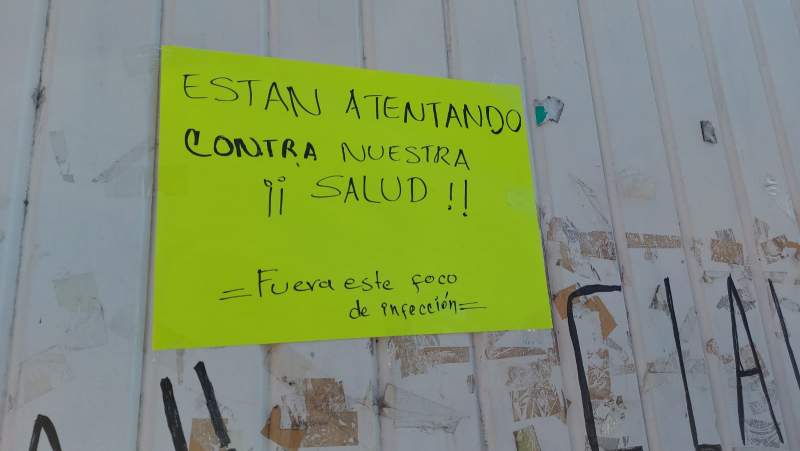 ESTAN ATENTANDO
CONTRA NUESTRA
¡¡ SALUD !!
= Fuera este foco
de infección =